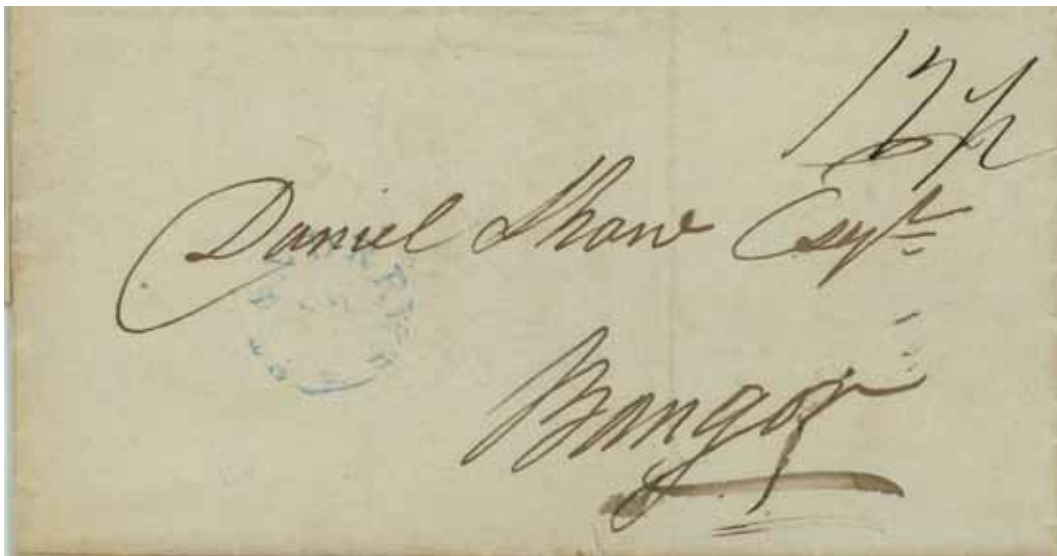 12½
Daniel Shaw Esqr
Bangor